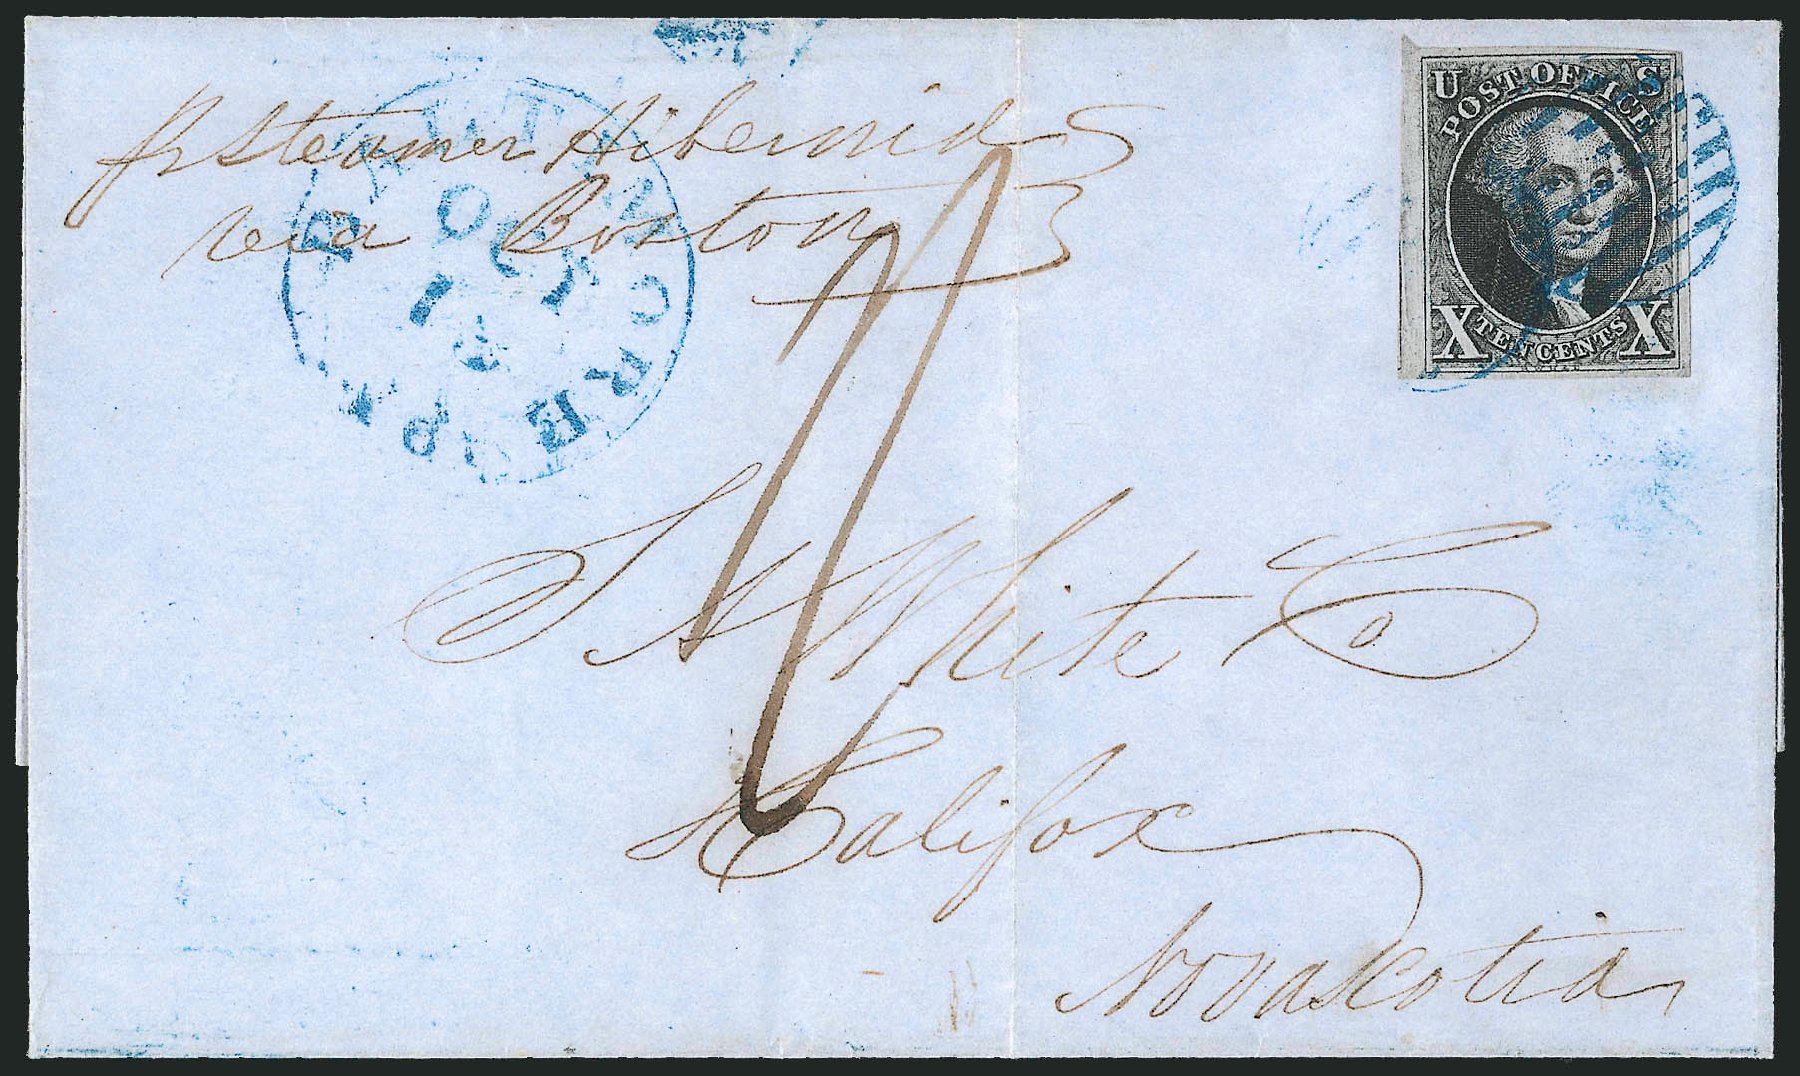 pr Steamer Hibernia
via Boston
BALTIMORE
OCT
13
U S
POST OFFICE
X TEN CENTS X
S A White Co
Halifax
Nova Scotia